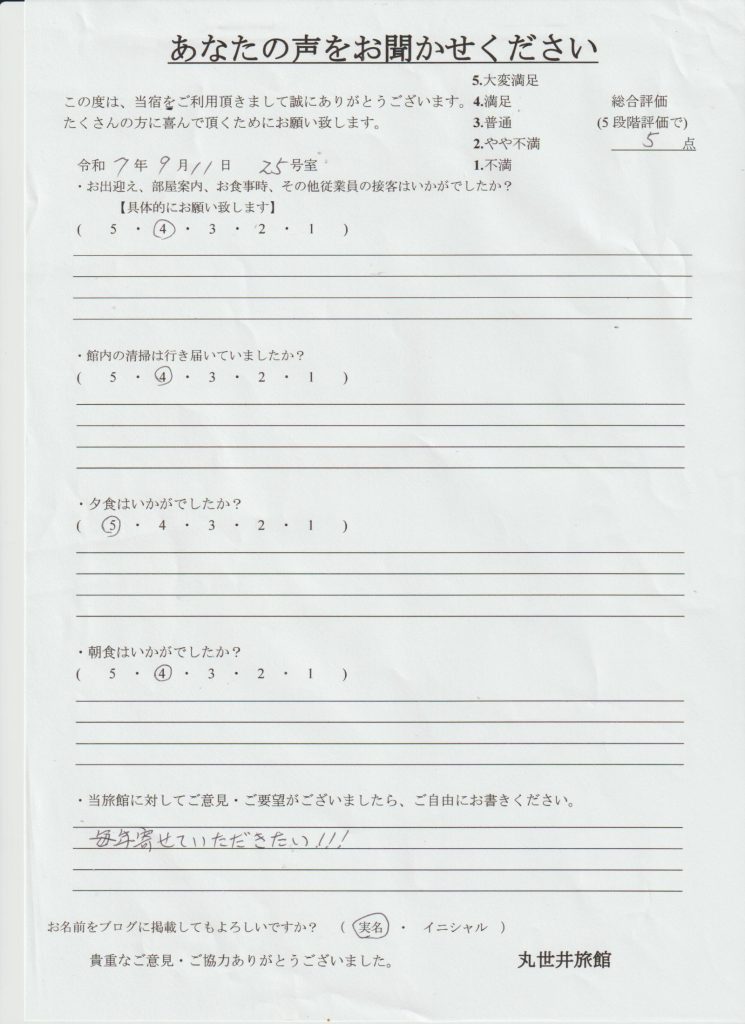 あなたの声をお聞かせください
5.大変満足
この度は、当宿をご利用頂きまして誠にありがとうございます。 4.満足 総合評価
たくさんの方に喜んで頂くためにお願い致します。 3.普通 (5段階評価で)
2.やや不満 5 点
令和 7 年 9 月 11 日 25 号室 1.不満
・お出迎え、部屋案内、お食事時、その他従業員の接客はいかがでしたか？
【具体的にお願い致します】
( 5 ・ 4 ・ 3 ・ 2 ・ 1 )
・館内の清掃は行き届いていましたか？
( 5 ・ 4 ・ 3 ・ 2 ・ 1 )
・夕食はいかがでしたか？
( 5 ・ 4 ・ 3 ・ 2 ・ 1 )
・朝食はいかがでしたか？
( 5 ・ 4 ・ 3 ・ 2 ・ 1 )
・当旅館に対してご意見・ご要望がございましたら、ご自由にお書きください。
毎年寄せていただきたい!!!
お名前をブログに掲載してもよろしいですか？ ( 実名 ・ イニシャル )
貴重なご意見・ご協力ありがとうございました。 丸世井旅館